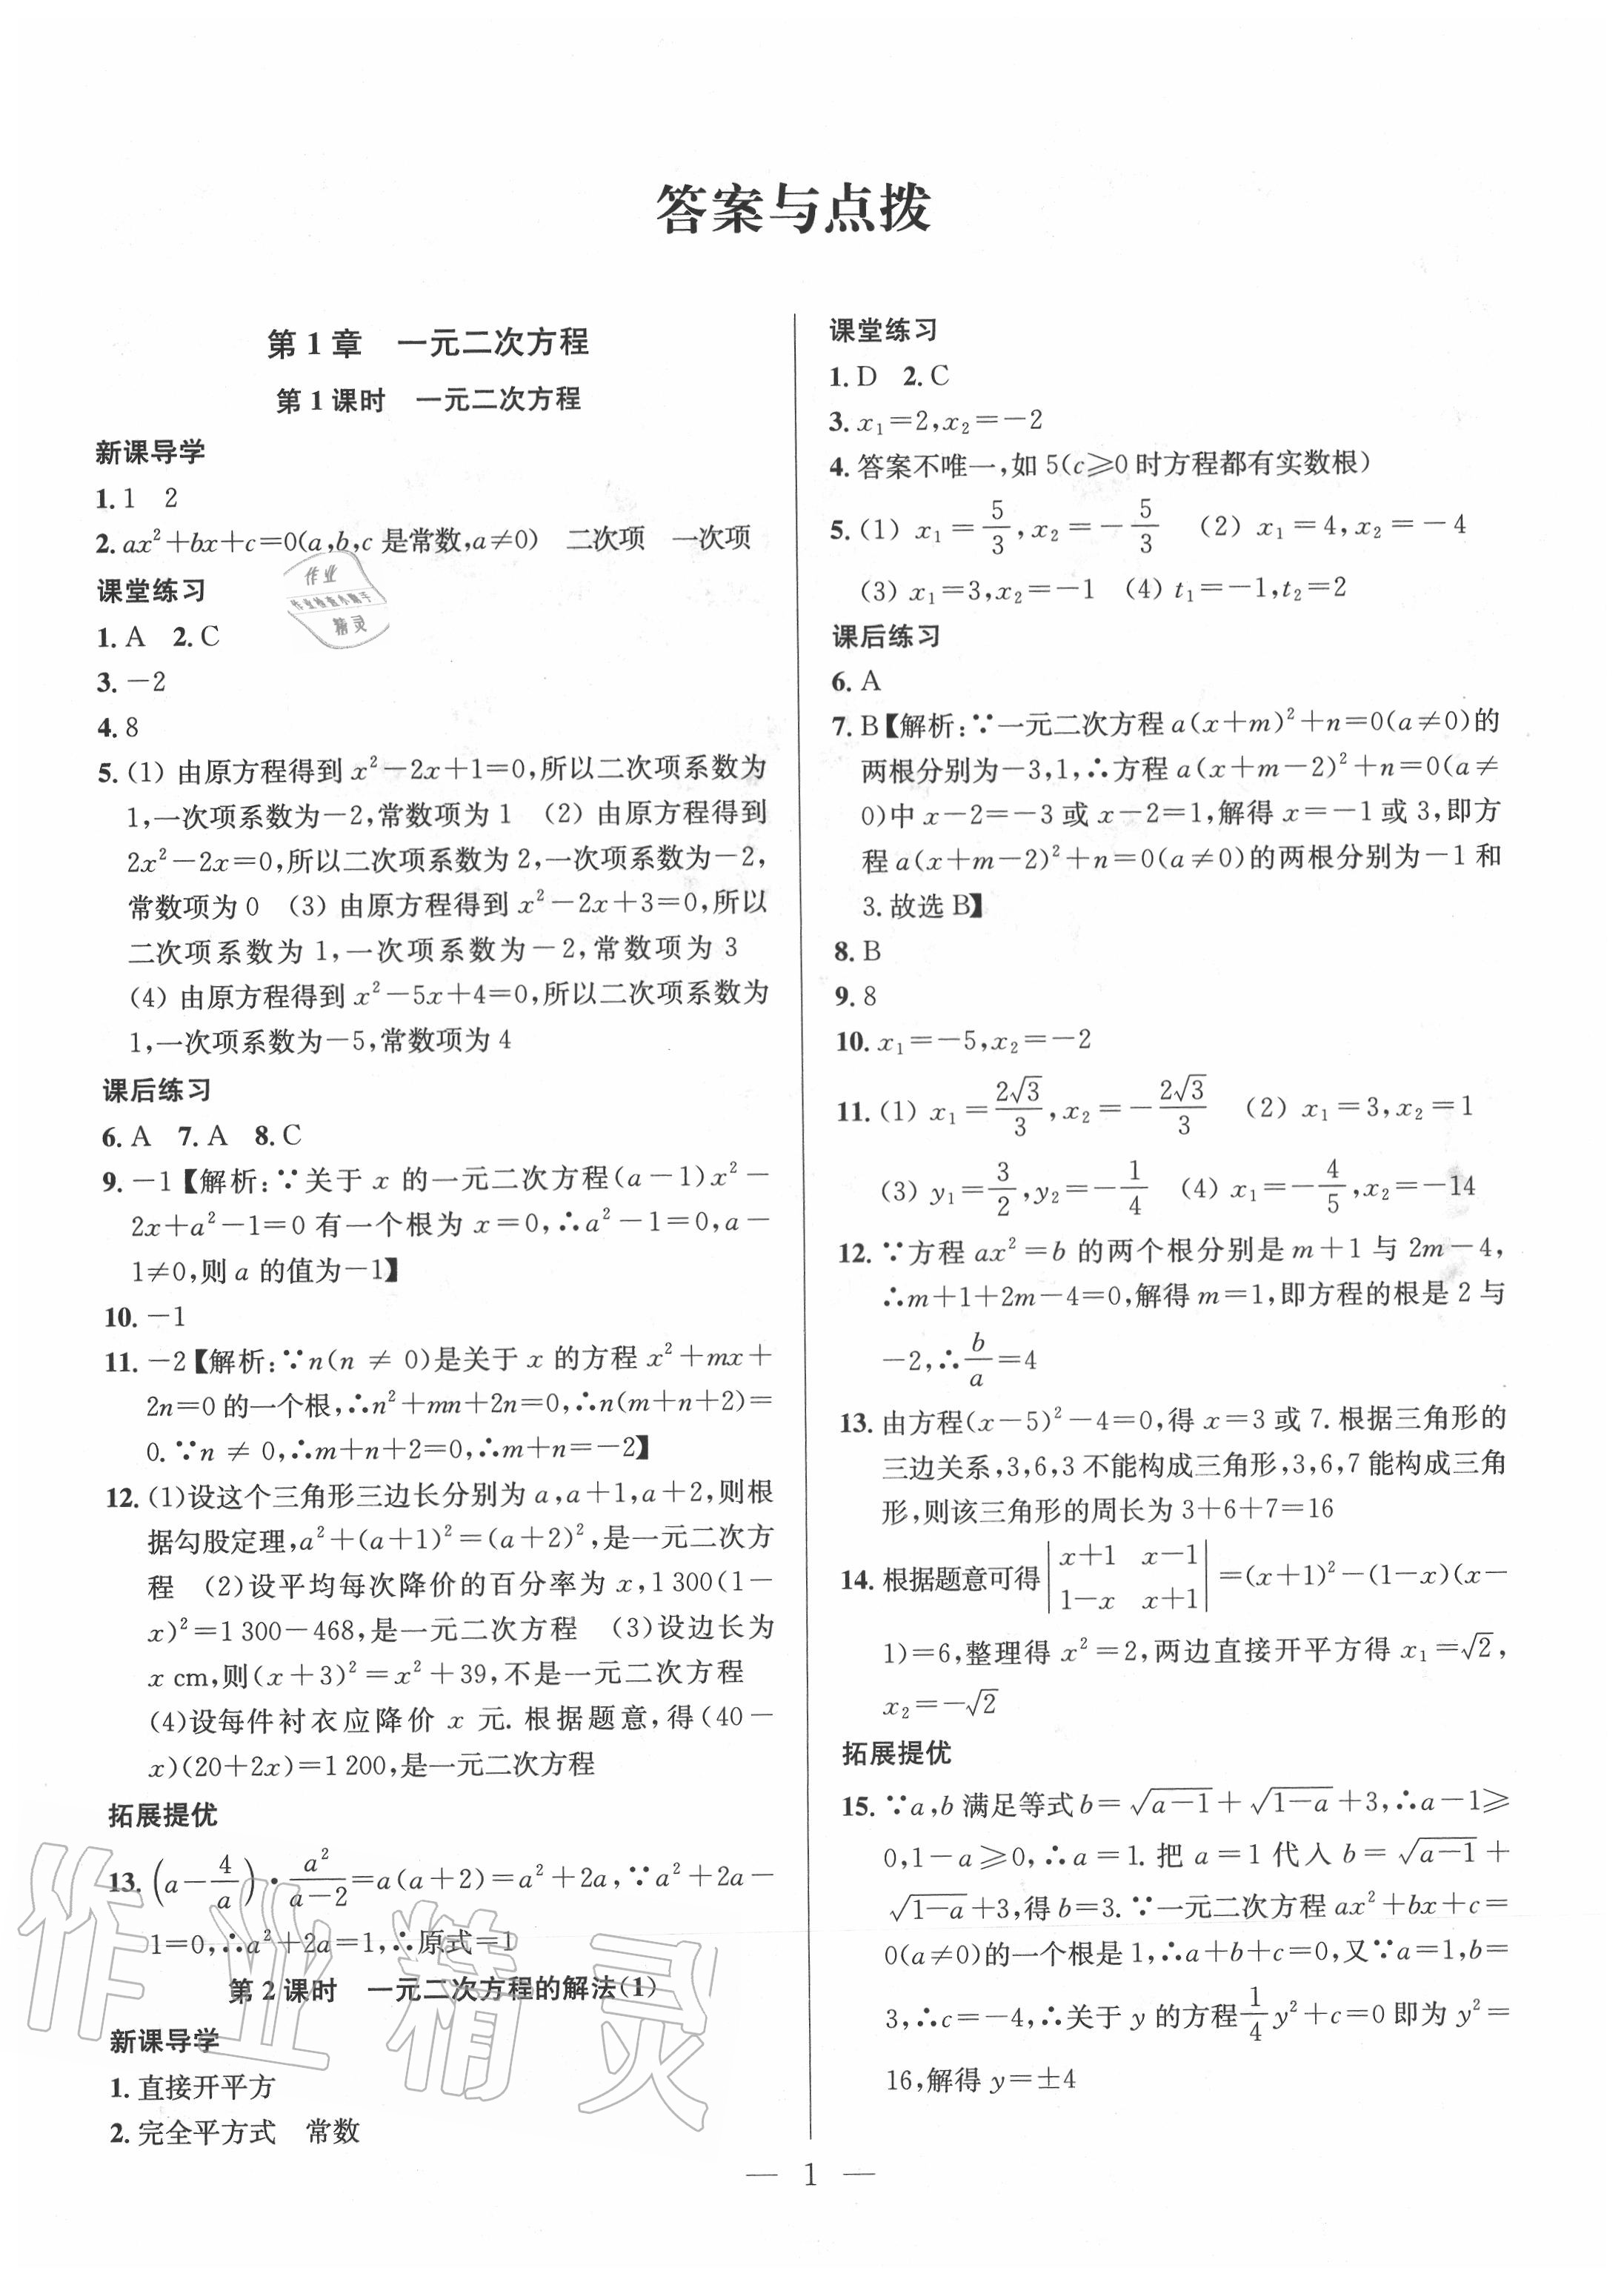 答案与点拨
第1章 一元二次方程
第1课时 一元二次方程
新课导学
1.1 2
2.ax²+bx+c=0(a,b,c是常数,a≠0) 二次项 一次项
课堂练习
1.A 2.C
3.-2
4.8
5.(1) 由原方程得到x²-2x+1=0,所以二次项系数为
1,一次项系数为-2,常数项为1 (2) 由原方程得到
2x²-2x=0,所以二次项系数为2,一次项系数为-2,
常数项为0 (3) 由原方程得到x²-2x+3=0,所以
二次项系数为1,一次项系数为-2,常数项为3
(4) 由原方程得到x²-5x+4=0,所以二次项系数为
1,一次项系数为-5,常数项为4
课后练习
6.A 7.A 8.C
9.-1【解析:∵关于x的一元二次方程(a-1)x²-
2x+a²-1=0有一个根为x=0,∴a²-1=0,a-
1≠0,则a的值为-1】
10.-1
11.-2【解析:∵n(n≠0)是关于x的方程x²+mx+
2n=0的一个根,∴n²+mn+2n=0,∴n(m+n+2)=
0.∵n≠0,∴m+n+2=0,∴m+n=-2】
12.(1)设这个三角形三边长分别为a,a+1,a+2,则根
据勾股定理,a²+(a+1)²=(a+2)²,是一元二次方
程 (2)设平均每次降价的百分率为x,1 300(1-
x)²=1 300-468,是一元二次方程 (3)设边长为
x cm,则(x+3)²=x²+39,不是一元二次方程
(4)设每件衬衣应降价x元.根据题意,得(40-
x)(20+2x)=1 200,是一元二次方程
拓展提优
13.(a-4/a)·a²/(a-2)=a(a+2)=a²+2a,∵a²+2a-
1=0,∴a²+2a=1,∴原式=1
第2课时 一元二次方程的解法(1)
新课导学
1.直接开平方
2.完全平方式 常数
课堂练习
1.D 2.C
3.x₁=2,x₂=-2
4.答案不唯一,如5(c⩾0时方程都有实数根)
5.(1) x₁=5/3,x₂=-5/3 (2) x₁=4,x₂=-4
(3) x₁=3,x₂=-1 (4) t₁=-1,t₂=2
课后练习
6.A
7.B【解析:∵一元二次方程a(x+m)²+n=0(a≠0)的
两根分别为-3,1,∴方程a(x+m-2)²+n=0(a≠
0)中x-2=-3或x-2=1,解得x=-1或3,即方
程a(x+m-2)²+n=0(a≠0)的两根分别为-1和
3.故选B】
8.B
9.8
10.x₁=-5,x₂=-2
11.(1) x₁=2√3/3,x₂=-2√3/3 (2) x₁=3,x₂=1
(3) y₁=3/2,y₂=-1/4 (4) x₁=-4/5,x₂=-14
12.∵方程ax²=b的两个根分别是m+1与2m-4,
∴m+1+2m-4=0,解得m=1,即方程的根是2与
-2,∴b/a=4
13.由方程(x-5)²-4=0,得x=3或7.根据三角形的
三边关系,3,6,3不能构成三角形,3,6,7能构成三角
形,则该三角形的周长为3+6+7=16
14.根据题意可得|x+1 x-1; 1-x x+1|=(x+1)²-(1-x)(x-
1)=6,整理得x²=2,两边直接开平方得x₁=√2,
x₂=-√2
拓展提优
15.∵a,b满足等式b=√(a-1)+√(1-a)+3,∴a-1⩾
0,1-a⩾0,∴a=1.把a=1代入b=√(a-1)+
√(1-a)+3,得b=3.∵一元二次方程ax²+bx+c=
0(a≠0)的一个根是1,∴a+b+c=0,又∵a=1,b=
3,∴c=-4,∴关于y的方程1/4y²+c=0即为y²=
16,解得y=±4
— 1 —
作业
作业检查小助手
精灵
作业精灵